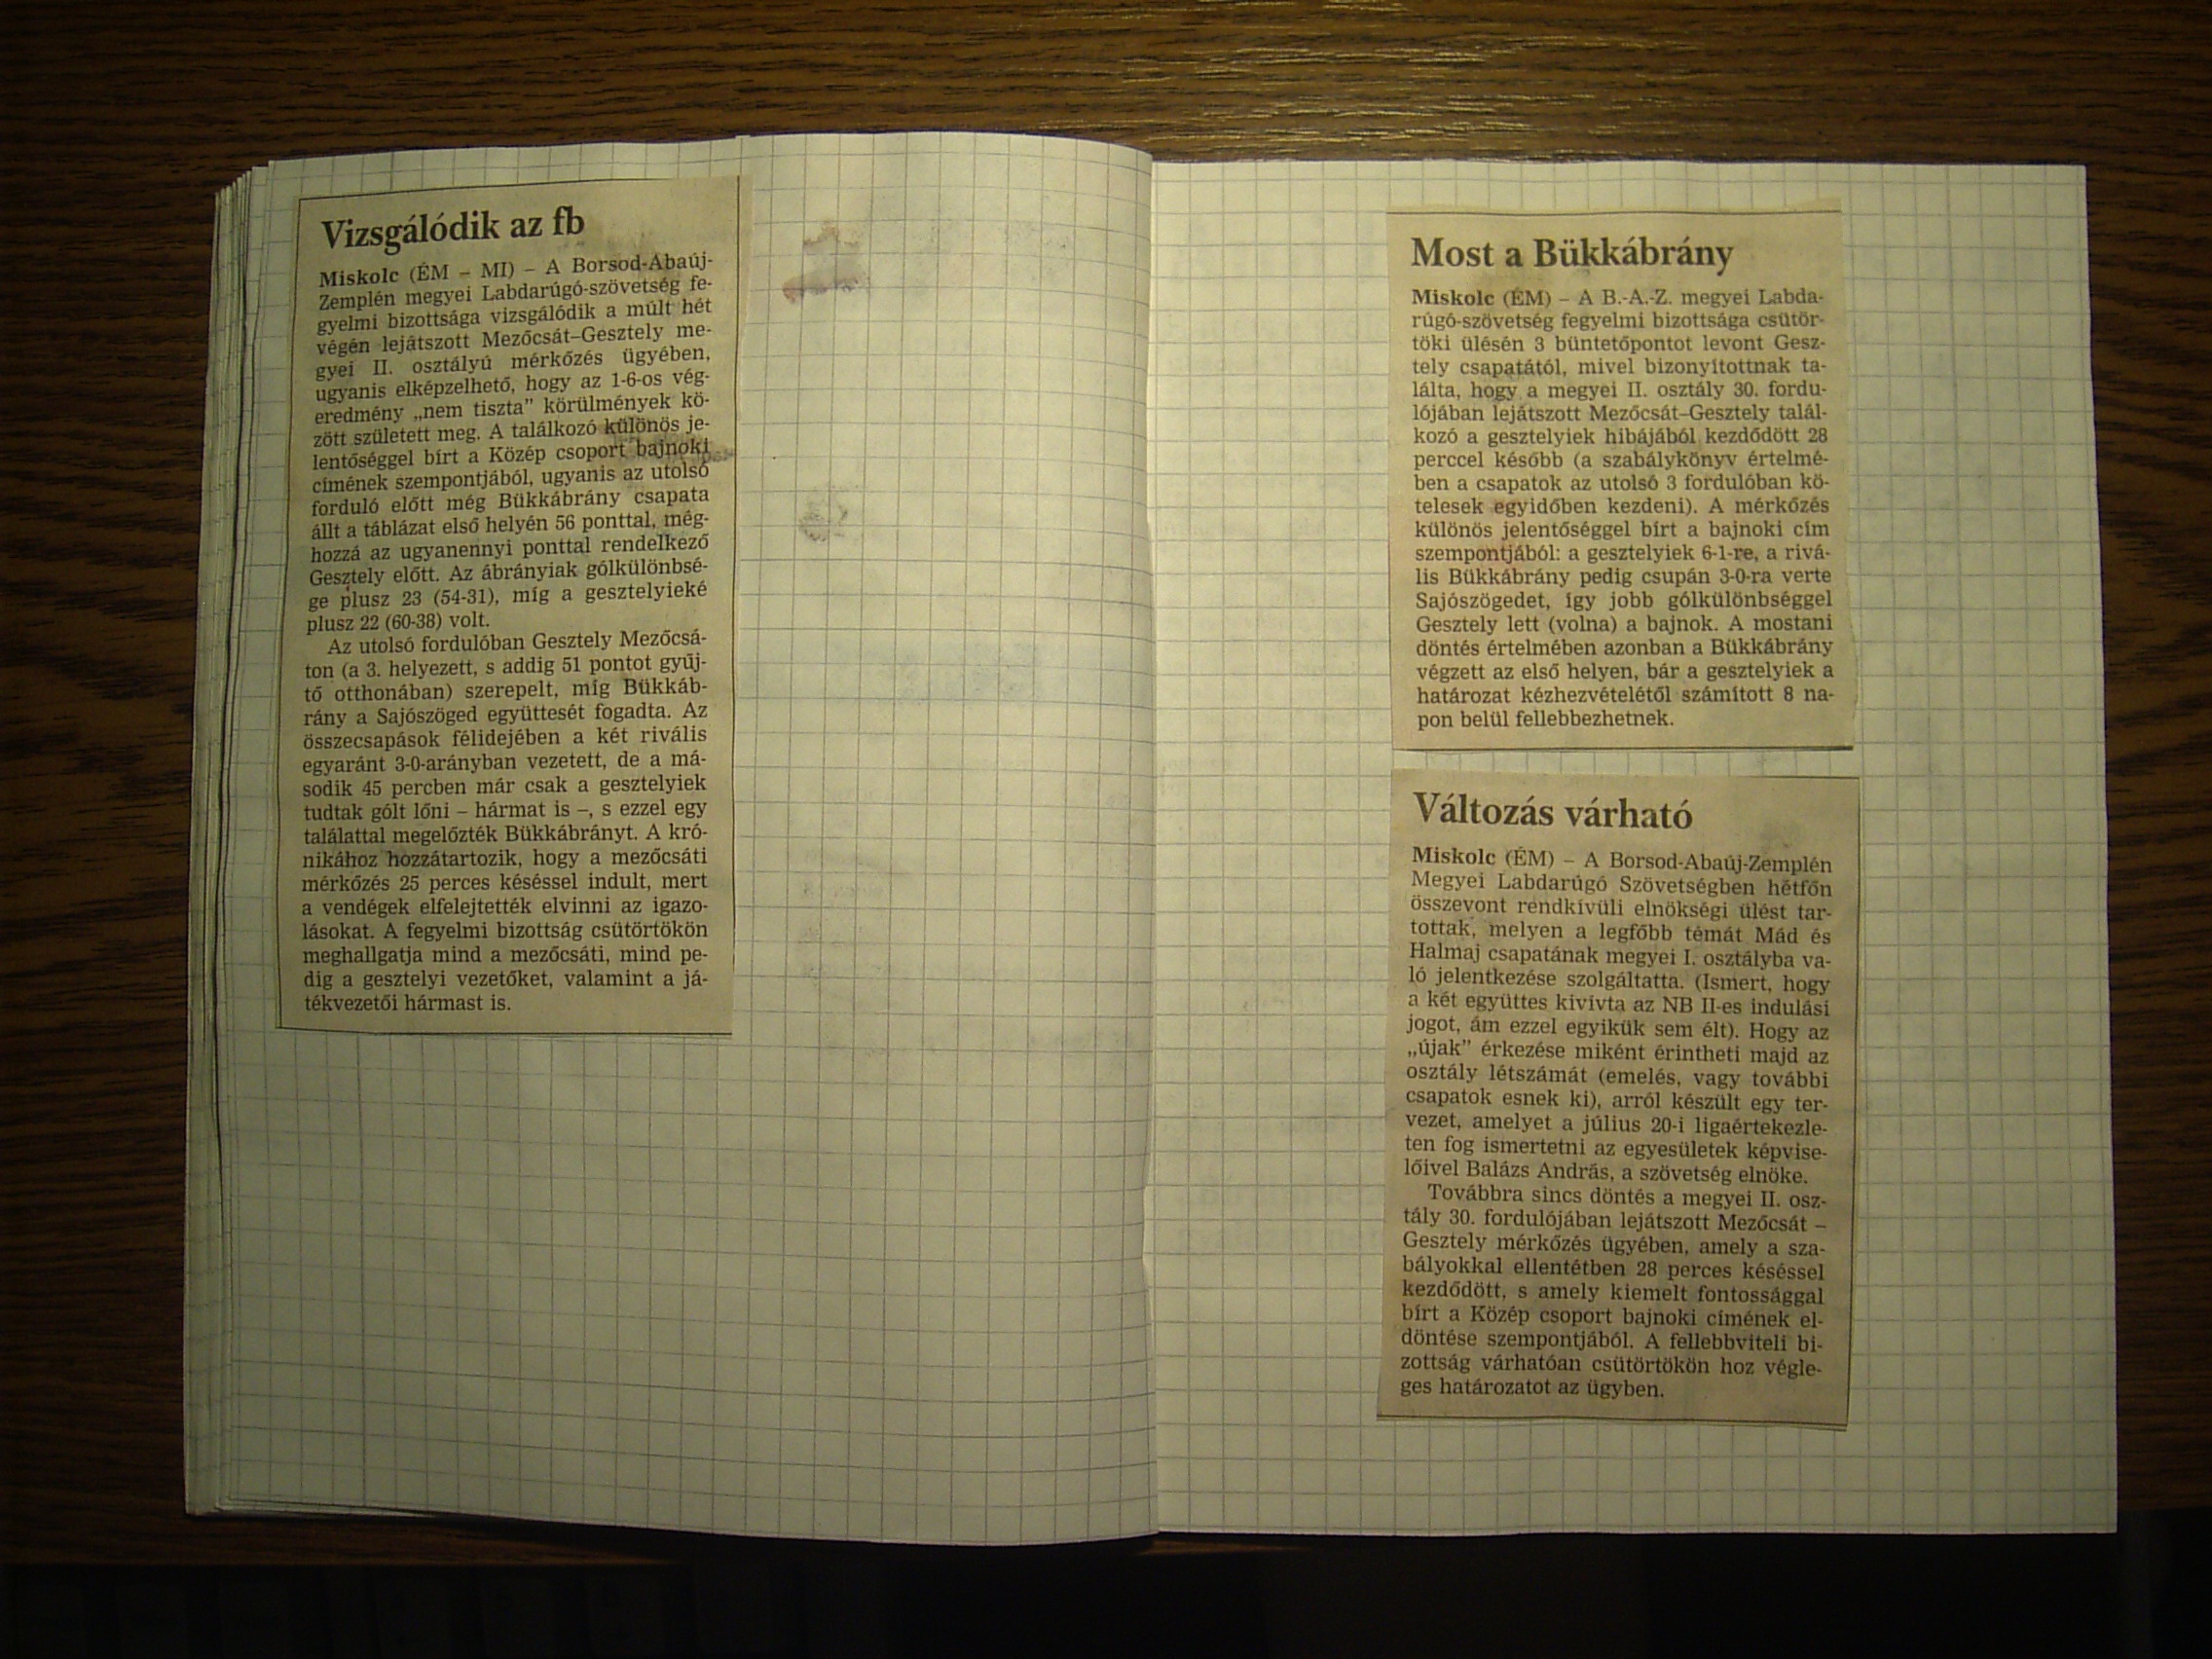 Vizsgálódik az fb
Miskolc (ÉM – MI) – A Borsod-Abaúj-
Zemplén megyei Labdarúgó-szövetség fe-
gyelmi bizottsága vizsgálódik a múlt hét
végén lejátszott Mezőcsát–Gesztely me-
gyei II. osztályú mérkőzés ügyében,
ugyanis elképzelhető, hogy az 1-6-os vég-
eredmény „nem tiszta” körülmények kö-
zött született meg. A találkozó különös je-
lentőséggel bírt a Közép csoport bajnoki
címének szempontjából, ugyanis az utolsó
forduló előtt még Bükkábrány csapata
állt a táblázat első helyén 56 ponttal, még-
hozzá az ugyanennyi ponttal rendelkező
Gesztely előtt. Az ábrányiak gólkülönbsé-
ge plusz 23 (54-31), míg a gesztelyieké
plusz 22 (60-38) volt.
Az utolsó fordulóban Gesztely Mezőcsá-
ton (a 3. helyezett, s addig 51 pontot gyűj-
tő otthonában) szerepelt, míg Bükkáb-
rány a Sajószöged együttesét fogadta. Az
összecsapások félidejében a két rivális
egyaránt 3-0-arányban vezetett, de a má-
sodik 45 percben már csak a gesztelyiek
tudtak gólt lőni – hármat is –, s ezzel egy
találattal megelőzték Bükkábrányt. A kró-
nikához hozzátartozik, hogy a mezőcsáti
mérkőzés 25 perces késéssel indult, mert
a vendégek elfelejtették elvinni az igazo-
lásokat. A fegyelmi bizottság csütörtökön
meghallgatja mind a mezőcsáti, mind pe-
dig a gesztelyi vezetőket, valamint a já-
tékvezetői hármast is.
Most a Bükkábrány
Miskolc (ÉM) – A B.-A.-Z. megyei Labda-
rúgó-szövetség fegyelmi bizottsága csütör-
töki ülésén 3 büntetőpontot levont Gesz-
tely csapatától, mivel bizonyítottnak ta-
lálta, hogy a megyei II. osztály 30. fordu-
lójában lejátszott Mezőcsát–Gesztely talál-
kozó a gesztelyiek hibájából kezdődött 28
perccel később (a szabálykönyv értelmé-
ben a csapatok az utolsó 3 fordulóban kö-
telesek egyidőben kezdeni). A mérkőzés
különös jelentőséggel bírt a bajnoki cím
szempontjából: a gesztelyiek 6-1-re, a rivá-
lis Bükkábrány pedig csupán 3-0-ra verte
Sajószögedet, így jobb gólkülönbséggel
Gesztely lett (volna) a bajnok. A mostani
döntés értelmében azonban a Bükkábrány
végzett az első helyen, bár a gesztelyiek a
határozat kézhezvételétől számított 8 na-
pon belül fellebbezhetnek.
Változás várható
Miskolc (ÉM) – A Borsod-Abaúj-Zemplén
Megyei Labdarúgó Szövetségben hétfőn
összevont rendkívüli elnökségi ülést tar-
tottak, melyen a legfőbb témát Mád és
Halmaj csapatának megyei I. osztályba va-
ló jelentkezése szolgáltatta. (Ismert, hogy
a két együttes kivívta az NB II-es indulási
jogot, ám ezzel egyikük sem élt). Hogy az
„újak” érkezése miként érintheti majd az
osztály létszámát (emelés, vagy további
csapatok esnek ki), arról készült egy ter-
vezet, amelyet a július 20-i ligaértekezle-
ten fog ismertetni az egyesületek képvise-
lőivel Balázs András, a szövetség elnöke.
Továbbra sincs döntés a megyei II. osz-
tály 30. fordulójában lejátszott Mezőcsát –
Gesztely mérkőzés ügyében, amely a sza-
bályokkal ellentétben 28 perces késéssel
kezdődött, s amely kiemelt fontossággal
bírt a Közép csoport bajnoki címének el-
döntése szempontjából. A fellebbviteli bi-
zottság várhatóan csütörtökön hoz végle-
ges határozatot az ügyben.